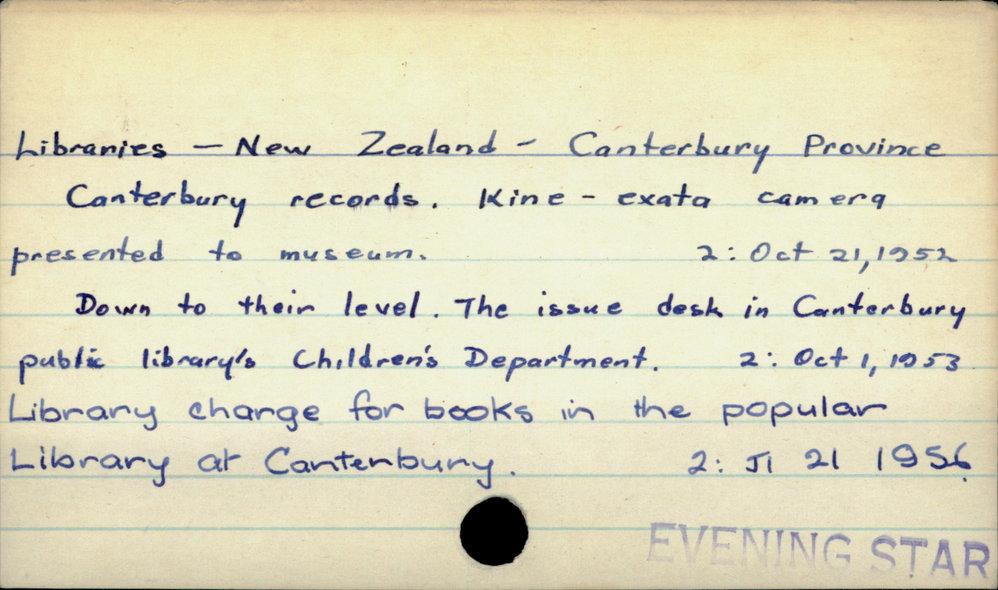 Libraries — New Zealand - Canterbury Province
Canterbury records. Kine - exata camera
presented to museum. 2: Oct 21, 1952
Down to their level. The issue desk in Canterbury
public library's Children's Department. 2: Oct 1, 1953
Library charge for books in the popular
Library at Canterbury. 2: Jl 21 1956.
EVENING STAR